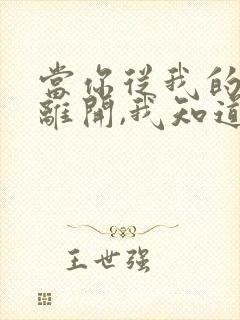 當你從我的
離開,我知道
王世强